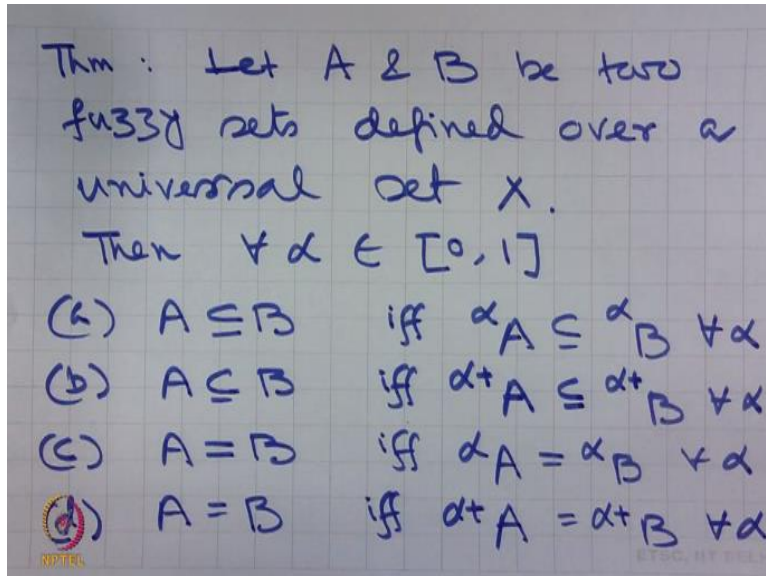 Thm : Let A & B be two
fuzzy sets defined over a
universal set X.
Then ∀ α ∈ [0, 1]
(a) A ⊆ B iff ᵅA ⊆ ᵅB ∀ α
(b) A ⊆ B iff ᵅ⁺A ⊆ ᵅ⁺B ∀ α
(c) A = B iff ᵅA = ᵅB ∀ α
(d) A = B iff ᵅ⁺A = ᵅ⁺B ∀ α
NPTEL